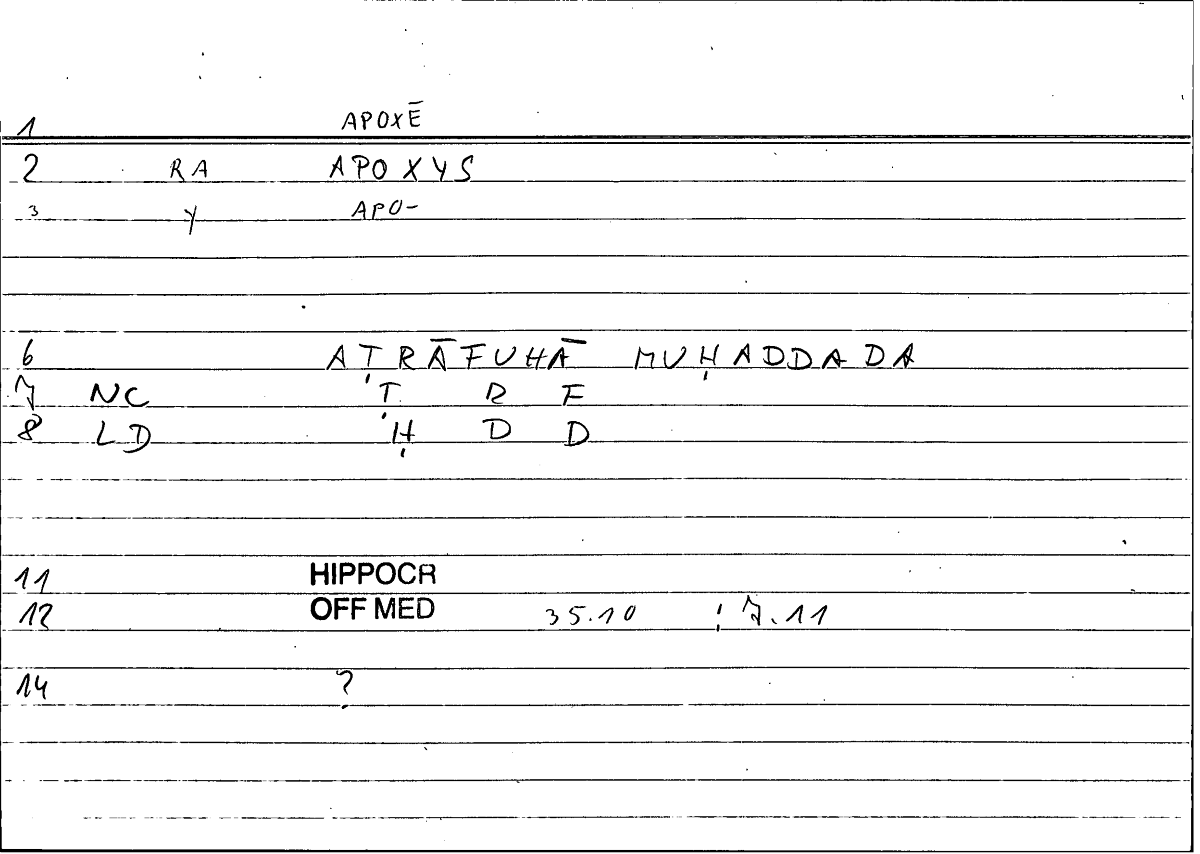 1 APOXĒ
2 RA APOXYS
3 Y APO-
6 AṬRĀFUHĀ MUḤADDADA
7 NC Ṭ R F
8 LD Ḥ D D
11 HIPPOCR
12 OFF MED 35.10 ; 7.11
14 ?